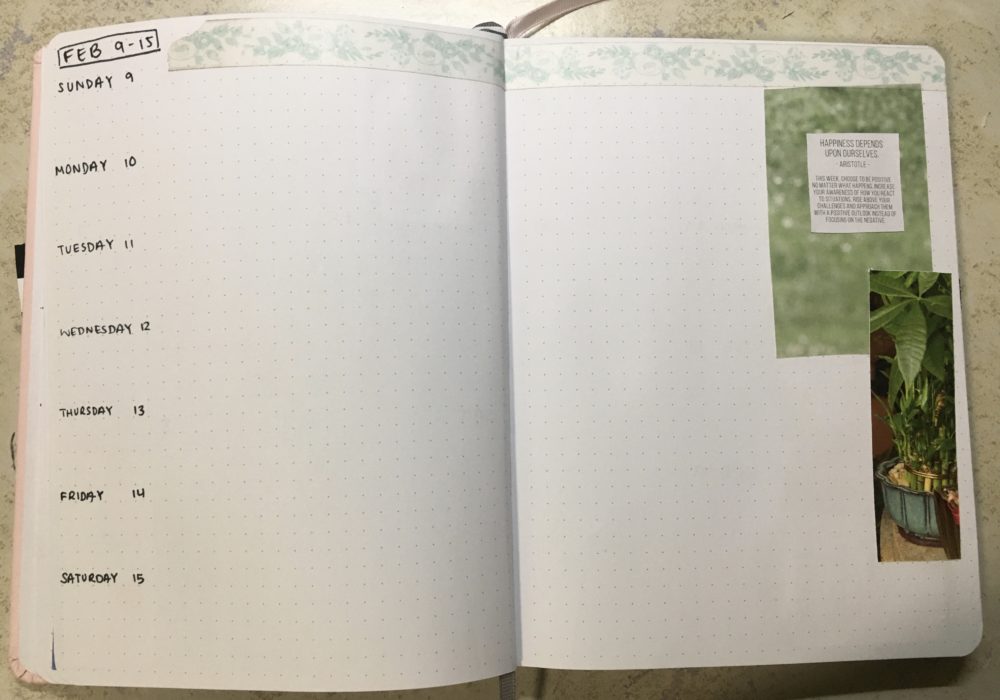 FEB 9-15
SUNDAY 9
MONDAY 10
TUESDAY 11
WEDNESDAY 12
THURSDAY 13
FRIDAY 14
SATURDAY 15
HAPPINESS DEPENDS
UPON OURSELVES.
- ARISTOTLE -
THIS WEEK, CHOOSE TO BE POSITIVE
NO MATTER WHAT HAPPENS. INCREASE
YOUR AWARENESS OF HOW YOU REACT
TO SITUATIONS. RISE ABOVE YOUR
CHALLENGES AND APPROACH THEM
WITH A POSITIVE OUTLOOK INSTEAD OF
FOCUSING ON THE NEGATIVE.